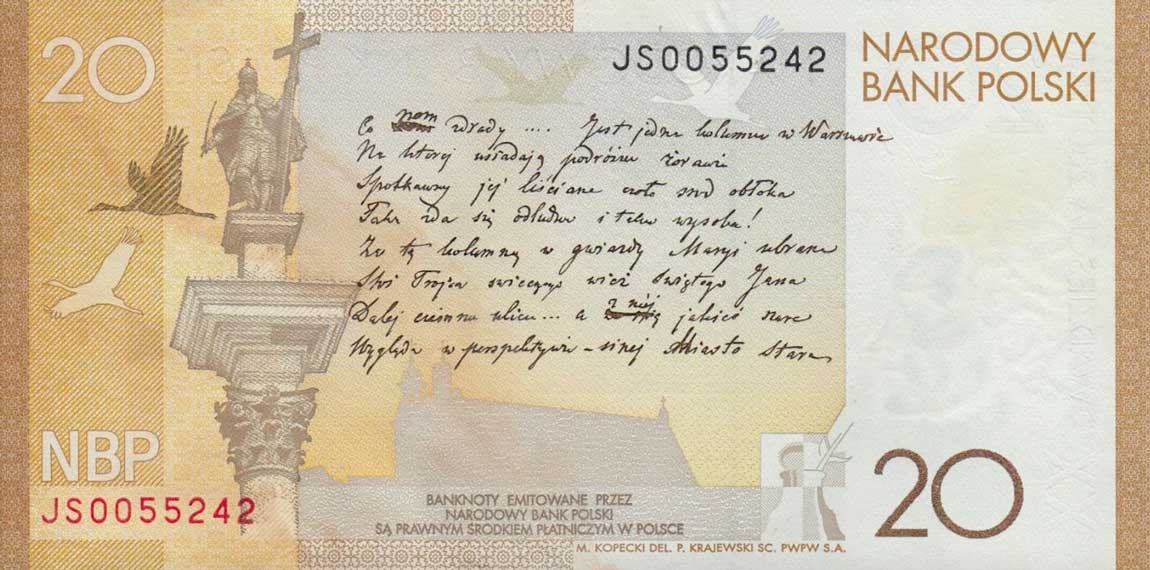 20
JS0055242
NARODOWY
BANK POLSKI
Co nom zdrady .... Jest jedna kolumna w Warszawie
Na ktorej usiadają podróżne żórawie
Spotkawszy jej liściane czoło śród obłoka
Taka zda się odludna i taka wysoka!
Za tą kolumną w gwiazdy Maryi ubrana
Stoi Trójca świecącego wież Świętego Jana
Dalej ciemna ulica ... a z niéj jakieś szare
Wygląda w perspektywie - sinej Miasto stare
NBP
JS0055242
BANKNOTY EMITOWANE PRZEZ
NARODOWY BANK POLSKI
SĄ PRAWNYM ŚRODKIEM PŁATNICZYM W POLSCE
20
M. KOPECKI DEL. P. KRAJEWSKI SC. PWPW S.A.